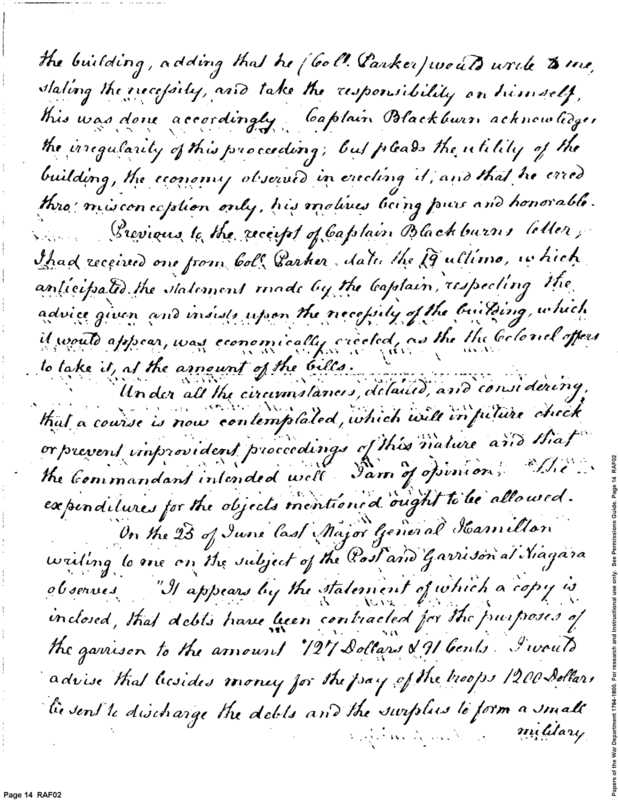 the building, adding that he (Coll. Parker) would write to me,
stating the necessity, and take the responsibility on himself,
this was done accordingly Captain Blackburn acknowledges
the irregularity of this proceeding; but pleads the utility of the
building, the economy observed in erecting it; and that he erred
thro: misconception only, his motives being pure and honorable.
Previous to the receipt of Captain Blackburns letter,
I had received one from Coll. Parker date the 19 ultimo, which
anticipated the statement made by the Captain, respecting the
advice given and insists upon the necessity of the building, which
it would appear, was economically erected, as the the Colonel offers
to take it, at the amount of the bills.
Under all the circumstances, detailed, and considering,
that a course is now contemplated, which will in future check
or prevent improvident proceedings of this nature and that
the Commandant intended well I am of opinion, The
expenditures for the objects mentioned ought to be allowed.
On the 25 of June last Major General Hamilton
writing to me on the subject of the Post and Garrison at Niagara
observes "It appears by the statement of which a copy is
inclosed, that debts have been contracted for the purposes of
the garrison to the amount 727 Dollars & 91 Cents. I would
advise that besides money for the pay of the troops 1200 Dollars
be sent to discharge the debts and the surplus to form a small
military
Page 14 RAF02
Papers of the War Department 1784-1803. For research and instructional use only. See Permissions Guide. Page 14 RAF02